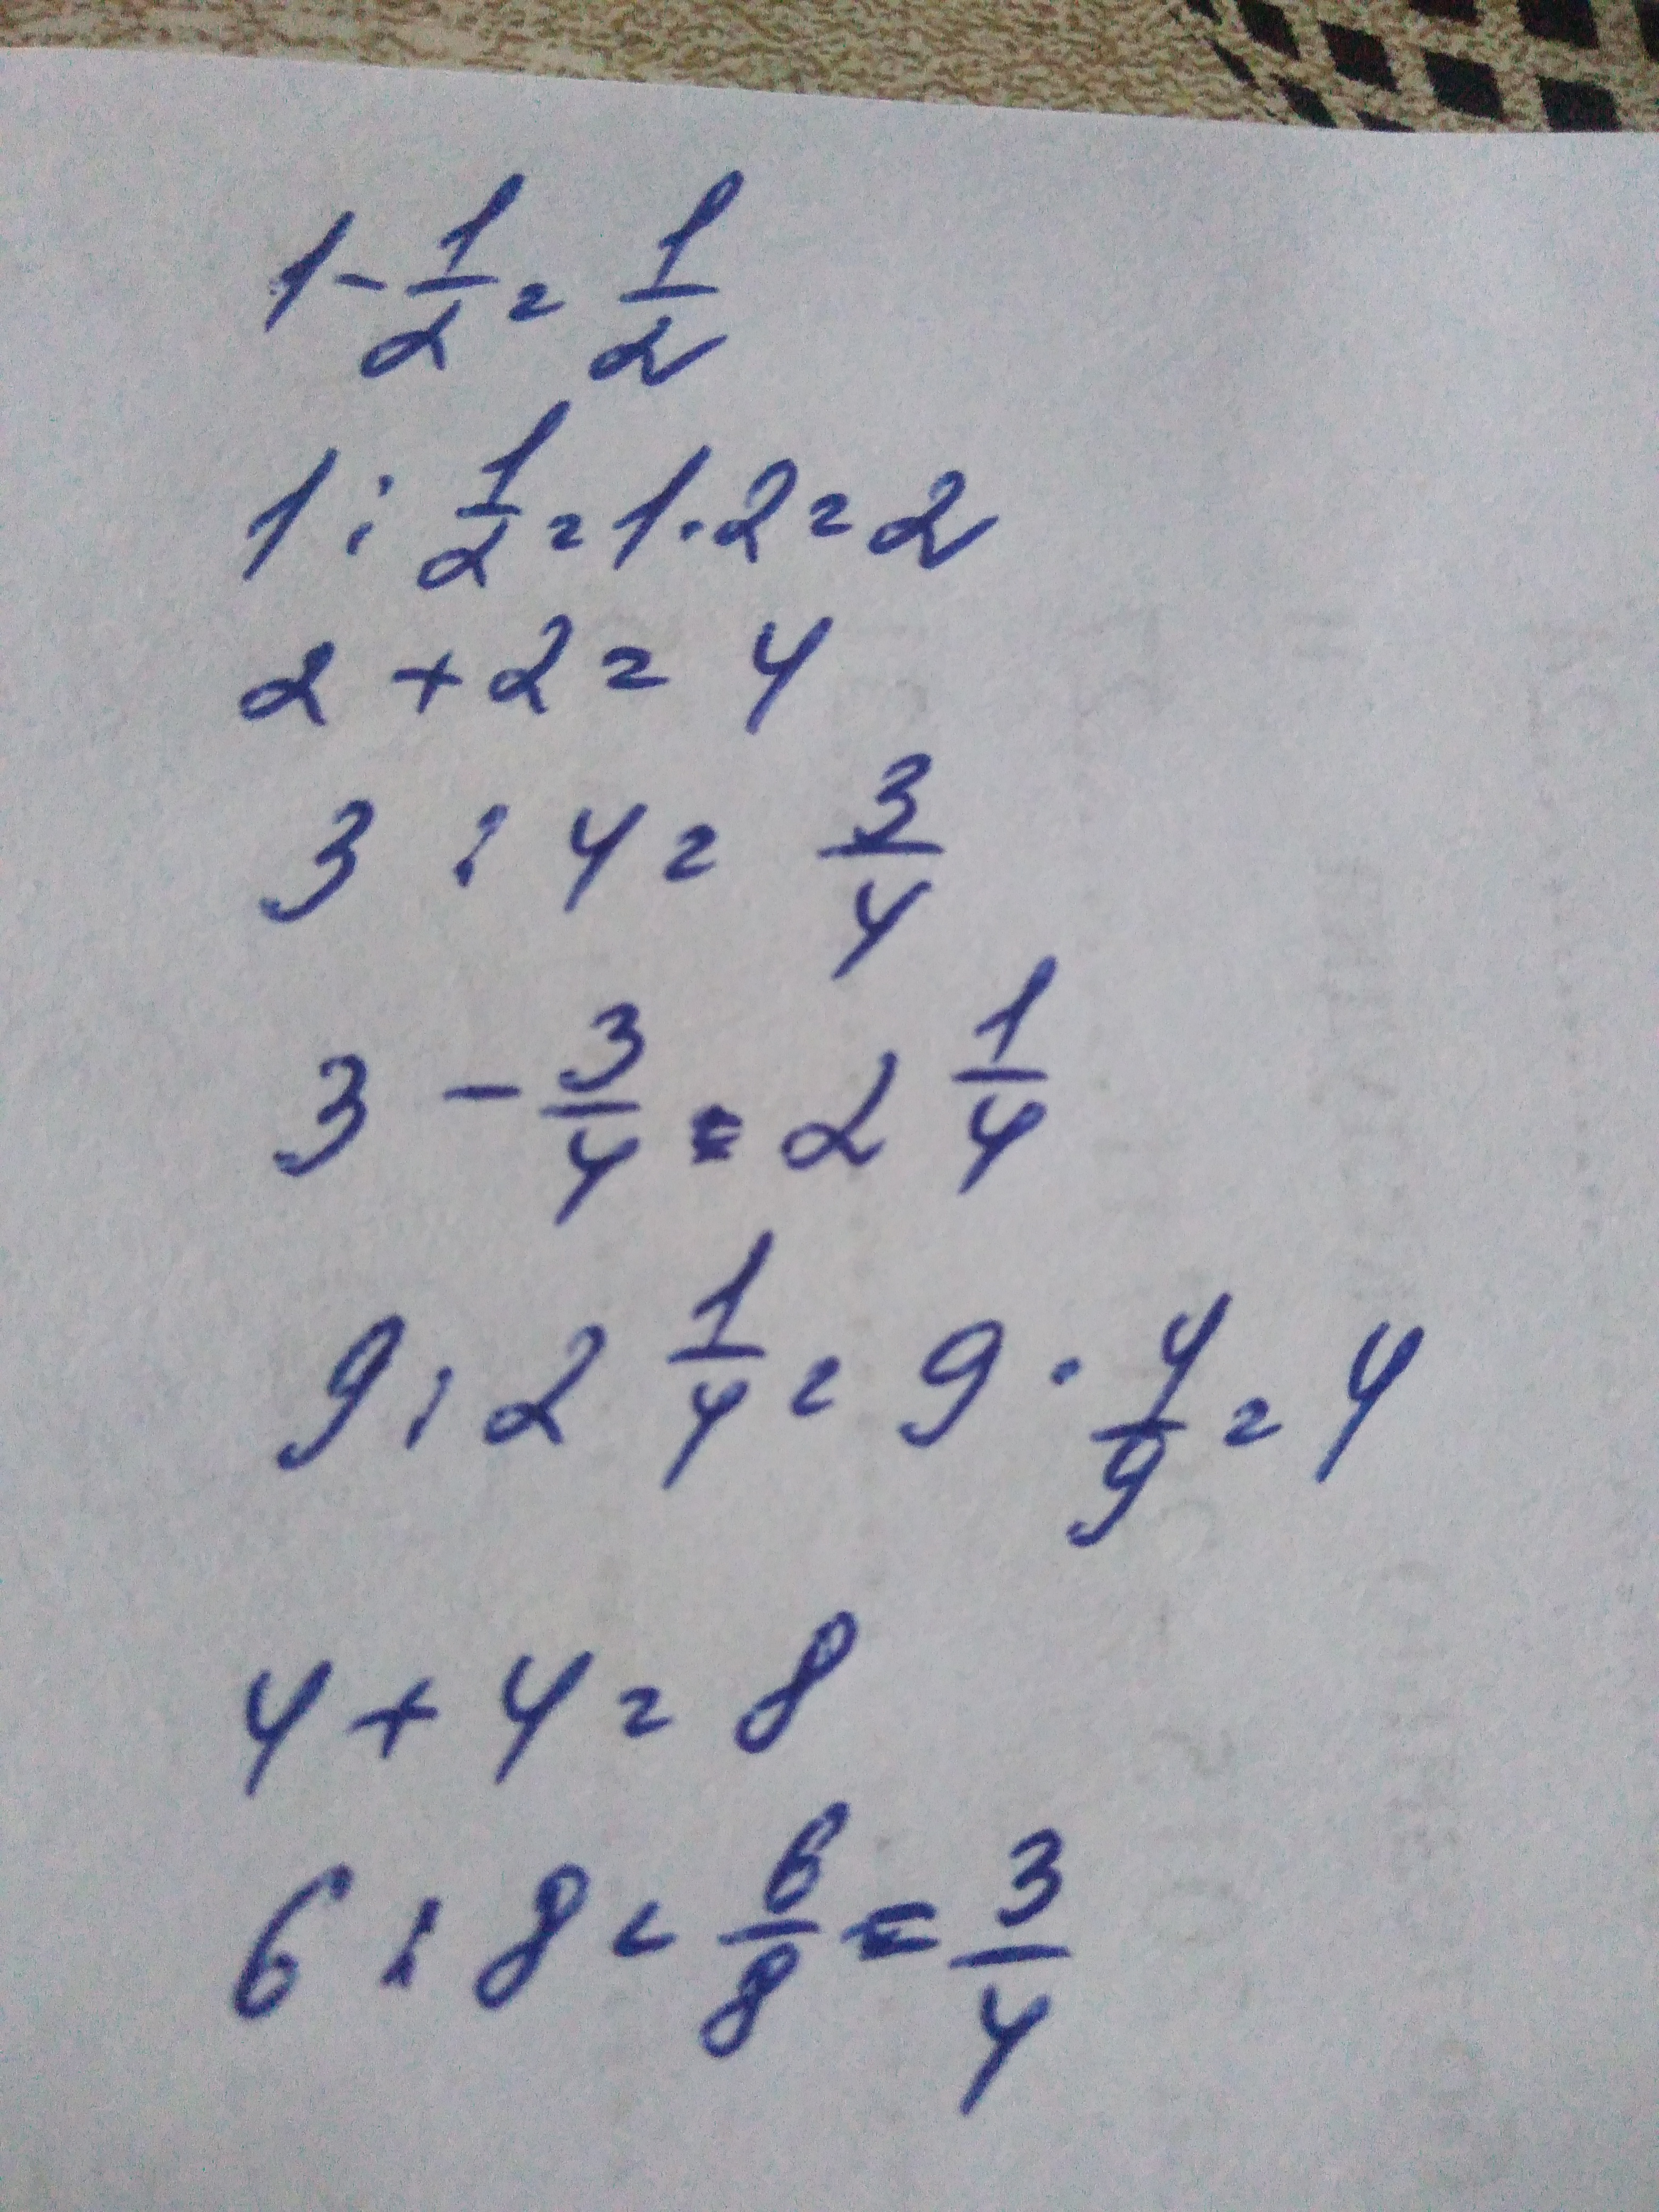 1 - 1/2 = 1/2
1 : 1/2 = 1 · 2 = 2
2 + 2 = 4
3 : 4 = 3/4
3 - 3/4 = 2 1/4
9 : 2 1/4 = 9 · 4/9 = 4
4 + 4 = 8
6 : 8 = 6/8 = 3/4